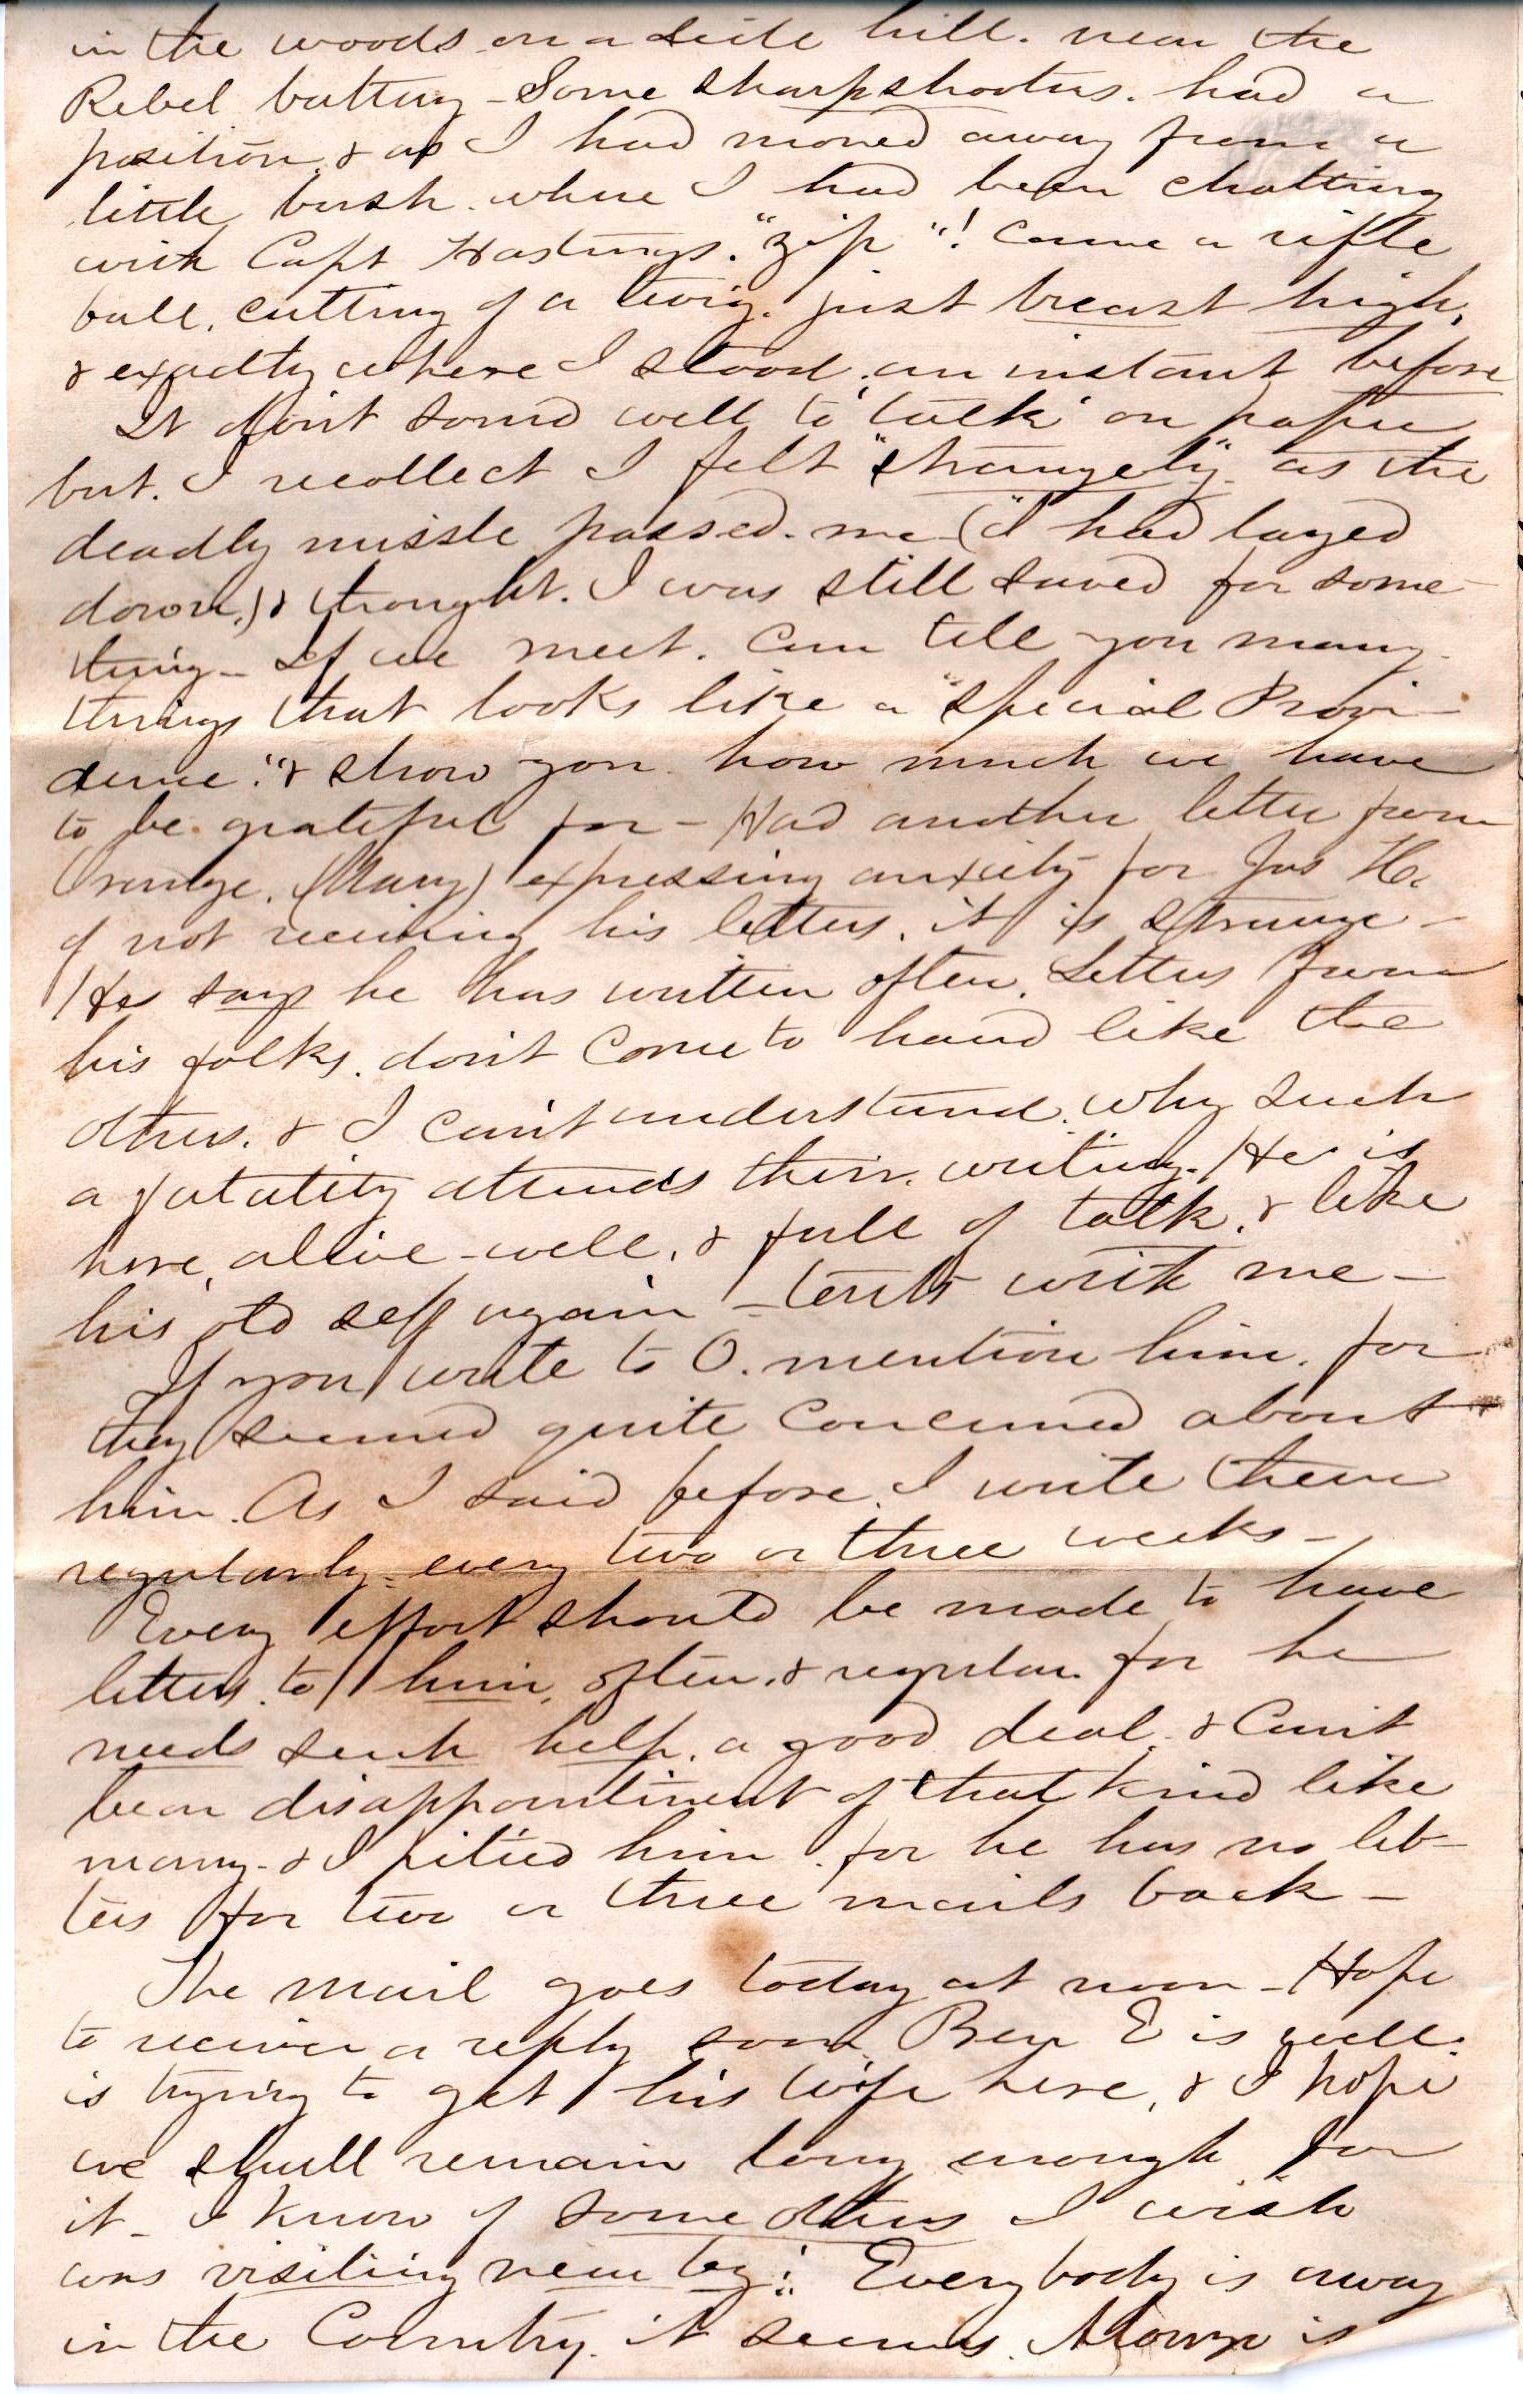 in the woods on a side hill. near the
Rebel battery - Some sharpshooters. had a
position, & as I had moved away from a
little bush. where I had been chatting
with Capt Hastings. "zip"! came a rifle
ball, cutting of a twig. just breast high,
& exactly where I stood, an instant before
It don't sound well to 'talk' on paper
but. I recollect I felt "strangely" as the
deadly missle passed. me - (I had layed
down,) & thought. I was still saved for some-
thing - If we meet. can tell you many
things that looks like a "special Provi-
dence." & show you how much we have
to be grateful for - Had another letter from
Orange. (Mary) expressing anxiety for Jas H.
of not receiving his letters. it is strange -
He says he has written often. Letters from
his folks. don't come to hand like the
others. & I can't understand. why such
a fatality attends their. writing. He is
here, alive - well, & full of talk. & like
his old self again - tents with me -
If you write to O. mention him. for
they seemed quite concerned about
him. As I said before. I write them
regularly. every two or three weeks -
Every effort should be made to have
letters. to him, often. & regular. for he
needs such help. a good deal. & can't
bear disappointment of that kind like
many - & I pitied him. for he has no let-
ters for two or three mails back -
The mail goes today at noon - Hope
to receive a reply soon. Ben E is well.
is trying to get his wife here, & I hope
we shall remain long enough for
it - I know of some others I wish
was visiting near by! Everybody is away
in the Country. it seems. is